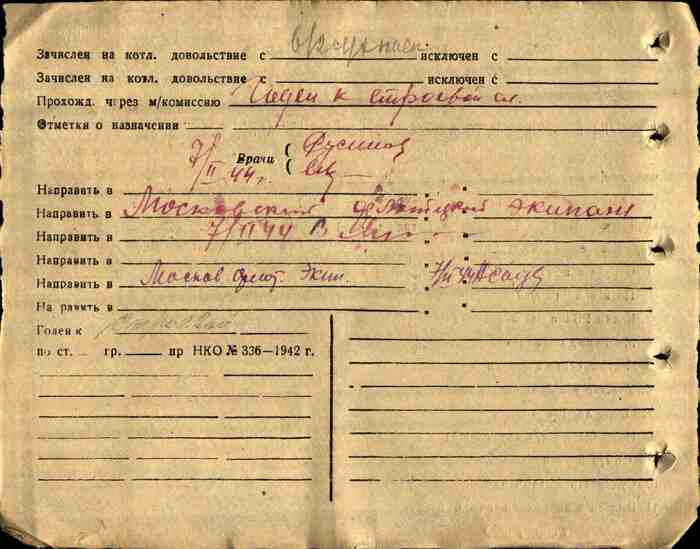 Зачислен на котл. довольствие с исключен с
Зачислен на котл. довольствие с исключен с
Прохожд. через м/комиссию Годен к строевой сл.
Отметки о назначении
7/II 44 г. Врачи
Направить в
Направить в Московский флотский экипаж
Направить в 7/II 44
Направить в
Направить в Москов флот. Экип.
На равить в
Годен к строевой
по ст. гр. пр НКО № 336—1942 г.